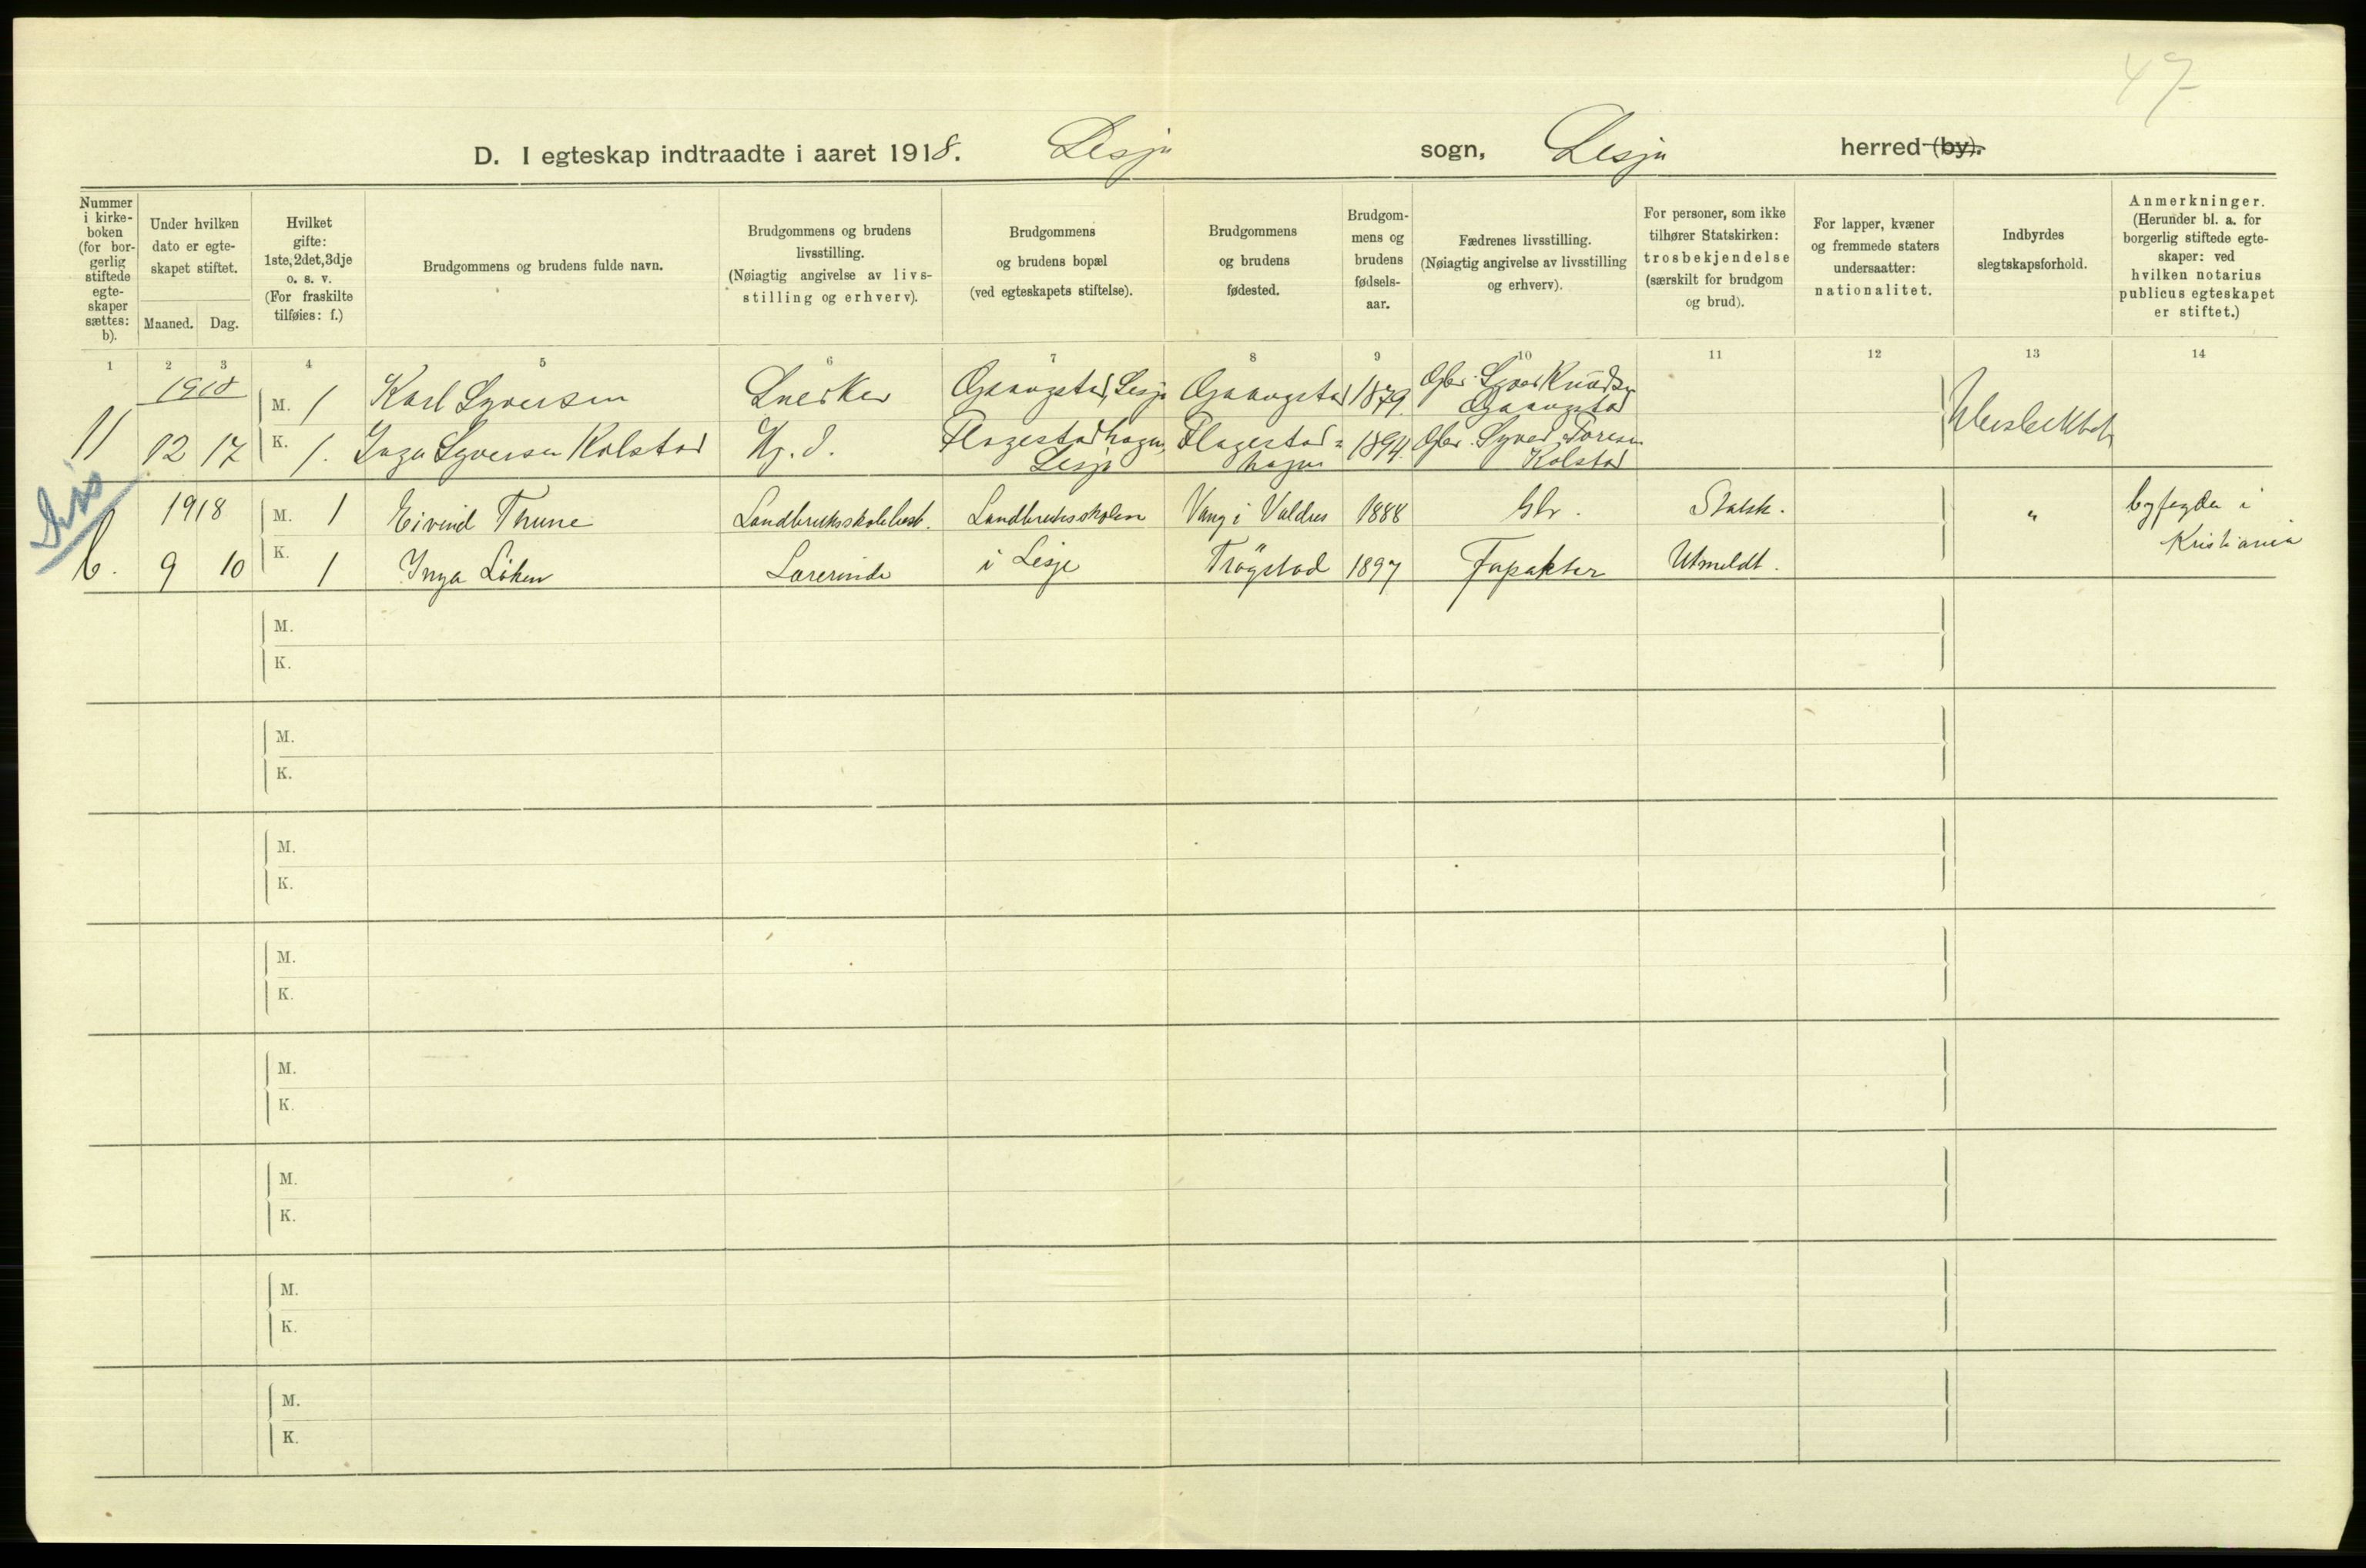 47
D. I egteskap indtraadte i aaret 1918. Lesja sogn, Lesja herred (by).
Nummer i kirke-boken (for bor-gerlig stiftede egte-skaper sættes: b).
Under hvilken dato er egte-skapet stiftet.
Maaned. Dag.
Hvilket gifte: 1ste, 2det, 3dje o. s. v. (For fraskilte tilføies: f.)
Brudgommens og brudens fulde navn.
Brudgommens og brudens livsstilling. (Nøiagtig angivelse av livs-stilling og erhverv).
Brudgommens og brudens bopæl (ved egteskapets stiftelse).
Brudgommens og brudens fødested.
Brudgom-mens og brudens fødsels-aar.
Fædrenes livsstilling. (Nøiagtig angivelse av livsstilling og erhverv).
For personer, som ikke tilhører Statskirken: trosbekjendelse (særskilt for brudgom og brud).
For lapper, kvæner og fremmede staters undersaatter: nationalitet.
Indbyrdes slegtskapsforhold.
Anmerkninger. (Herunder bl. a. for borgerlig stiftede egte-skaper: ved hvilken notarius publicus egteskapet er stiftet.)
1 2 3 4 5 6 7 8 9 10 11 12 13 14
1918 M. 1 Karl Syversen Snerker Lesja 1879. Gbr. Syver Knudsen
11 12 17 K. 1. Inga Syversen Kolstad Hj. d. Flagestadhagen, Lesja Flagestad=hagen 1894. Gbr. Syver Toresen Kolstad
Ubeslektet
1918 M. 1 Eivind Thune Landbruksskolebest. Landbruksskolen Vang i Valdres 1888 Gbr. Statsk. " byfogden i
b. 9 10 K. 1 Inga Løken Lærerinde i Lesje Trögstad 1897 Forpakter Utmeldt. Kristiania
M.
K.
M.
K.
M.
K.
M.
K.
M.
K.
M.
K.
M.
K.
M.
K.